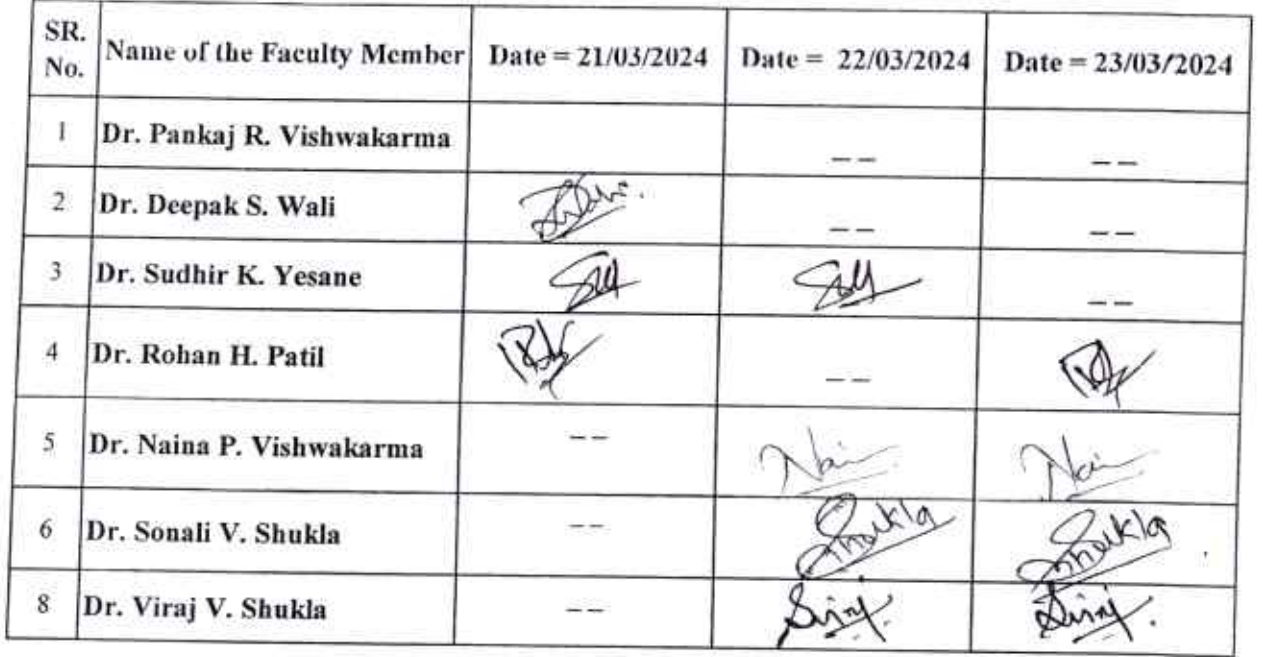 SR. No. Name of the Faculty Member Date = 21/03/2024 Date = 22/03/2024 Date = 23/03/2024
1 Dr. Pankaj R. Vishwakarma -- --
2 Dr. Deepak S. Wali -- --
3 Dr. Sudhir K. Yesane --
4 Dr. Rohan H. Patil --
5 Dr. Naina P. Vishwakarma --
6 Dr. Sonali V. Shukla -- Shukla Shukla
8 Dr. Viraj V. Shukla --